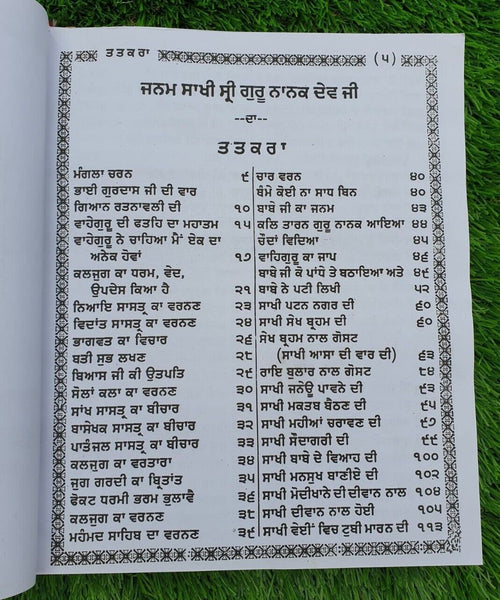 ਤਤਕਰਾ (੫)
ਜਨਮ ਸਾਖੀ ਸ੍ਰੀ ਗੁਰੂ ਨਾਨਕ ਦੇਵ ਜੀ
--ਦਾ--
ਤਤਕਰਾ
ਮੰਗਲਾ ਚਰਨ ੯
ਭਾਈ ਗੁਰਦਾਸ ਜੀ ਦੀ ਵਾਰ
ਗਿਆਨ ਰਤਨਾਵਲੀ ਦੀ ੧੦
ਵਾਹੇਗੁਰੂ ਦੀ ਫਤਹਿ ਦਾ ਮਹਾਤਮ ੧੫
ਵਾਹੇਗੁਰੂ ਨੇ ਚਾਹਿਆ ਮੈਂ ਏਕ ਦਾ
ਅਨੇਕ ਹੋਵਾਂ ੧੭
ਕਲਜੁਗ ਕਾ ਧਰਮ, ਵੇਦ,
ਉਪਦੇਸ ਕਿਆ ਹੈ ੨੧
ਨਿਆਇ ਸਾਸਤ੍ਰ ਕਾ ਵਰਨਣ ੨੩
ਵਿਦਾਂਤ ਸਾਸਤ੍ਰ ਕਾ ਵਰਨਣ ੨੪
ਭਾਗਵਤ ਕਾ ਵਿਚਾਰ ੨੬
ਬਤੀ ਸੁਭ ਲਖਣ ੨੮
ਬਿਆਸ ਜੀ ਕੀ ਉਤਪਤਿ ੨੯
ਸੋਲਾਂ ਕਲਾ ਕਾ ਵਰਨਣ ੩੦
ਸਾਂਖ ਸਾਸਤ੍ਰ ਕਾ ਬੀਚਾਰ ੩੧
ਬਾਸੇਖਕ ਸਾਸਤ੍ਰ ਕਾ ਬੀਚਾਰ ੩੨
ਪਾਤੰਜਲ ਸਾਸਤ੍ਰ ਕਾ ਬੀਚਾਰ ੩੩
ਕਲਜੁਗ ਕਾ ਵਰਤਾਰਾ ੩੪
ਜੁਗ ਗਰਦੀ ਕਾ ਬ੍ਰਿਤਾਂਤ ੩੫
ਫੋਕਟ ਧਰਮੀ ਭਰਮ ਭੁਲਾਵੈ ੩੬
ਕਲਜੁਗ ਕਾ ਵਰਨਣ ੩੮
ਮਹੰਮਦ ਸਾਹਿਬ ਦਾ ਵਰਨਣ ੩੯
ਚਾਰ ਵਰਨ ੪੦
ਥੰਮੇ ਕੋਈ ਨਾ ਸਾਧ ਬਿਨ ੪੦
ਬਾਬੇ ਜੀ ਕਾ ਜਨਮ ੪੩
ਕਲਿ ਤਾਰਨ ਗੁਰੂ ਨਾਨਕ ਆਇਆ ੪੪
ਚੌਦਾਂ ਵਿਦਿਆ ੪੫
ਵਾਹਿਗੁਰੂ ਕਾ ਜਾਪ ੪੬
ਬਾਬੇ ਜੀ ਕੋ ਪਾਂਧੇ ਤੇ ਬਠਾਇਆ ਅਤੇ ੪੯
ਬਾਬੇ ਨੇ ਪਟੀ ਲਿਖੀ ੫੨
ਸਾਖੀ ਪਟਨ ਨਗਰ ਦੀ ੬੦
ਸਾਖੀ ਸੇਖ ਬ੍ਰਹਮ ਦੀ ੬੦
ਸੇਖ ਬ੍ਰਹਮ ਨਾਲ ਗੋਸਟ
(ਸਾਖੀ ਆਸਾ ਦੀ ਵਾਰ ਦੀ) ੬੩
ਰਾਇ ਬੁਲਾਰ ਨਾਲ ਗੋਸਟ ੮੪
ਸਾਖੀ ਜਨੇਊ ਪਾਵਨੇ ਦੀ ੯੩
ਸਾਖੀ ਮਕਤਬ ਬੈਠਣ ਦੀ ੯੫
ਸਾਖੀ ਮਹੀਆਂ ਚਰਾਵਣ ਦੀ ੯੭
ਸਾਖੀ ਸੌਦਾਗਰੀ ਦੀ ੯੯
ਸਾਖੀ ਬਾਬੇ ਦੇ ਵਿਆਹ ਦੀ ੧੦੦
ਸਾਖੀ ਮਨਸੁਖ ਬਾਣੀਏ ਦੀ ੧੦੨
ਸਾਖੀ ਮੋਦੀਖਾਨੇ ਦੀ ਦੀਵਾਨ ਨਾਲ ੧੦੪
ਸਾਖੀ ਦੀਵਾਨ ਨਾਲ ਹੋਈ ੧੦੫
ਸਾਖੀ ਵੇਈਂ ਵਿਚ ਟੁਬੀ ਮਾਰਨ ਦੀ ੧੧੩